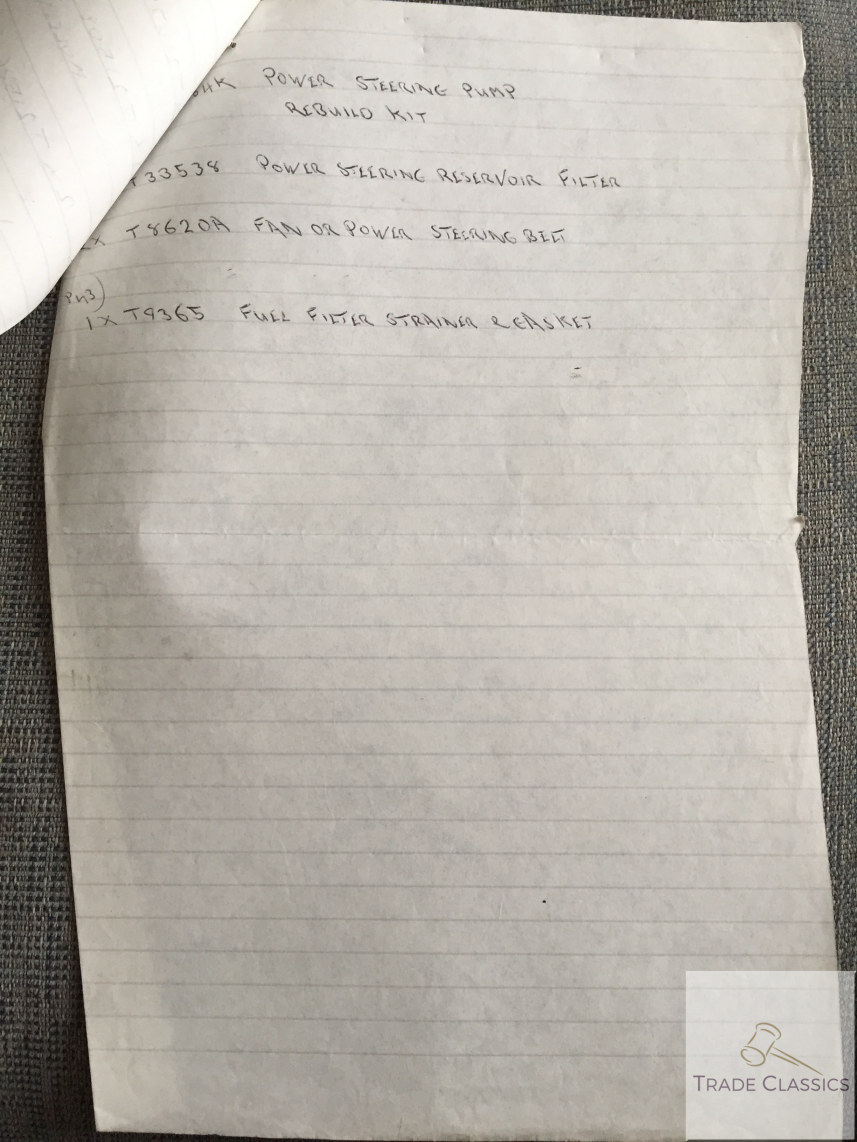 POWER STEERING PUMP
REBUILD KIT
33538 POWER STEERING RESERVOIR FILTER
X T8620A FAN OR POWER STEERING BELT
1 X T9365 FUEL FILTER STRAINER & GASKET
TRADE CLASSICS